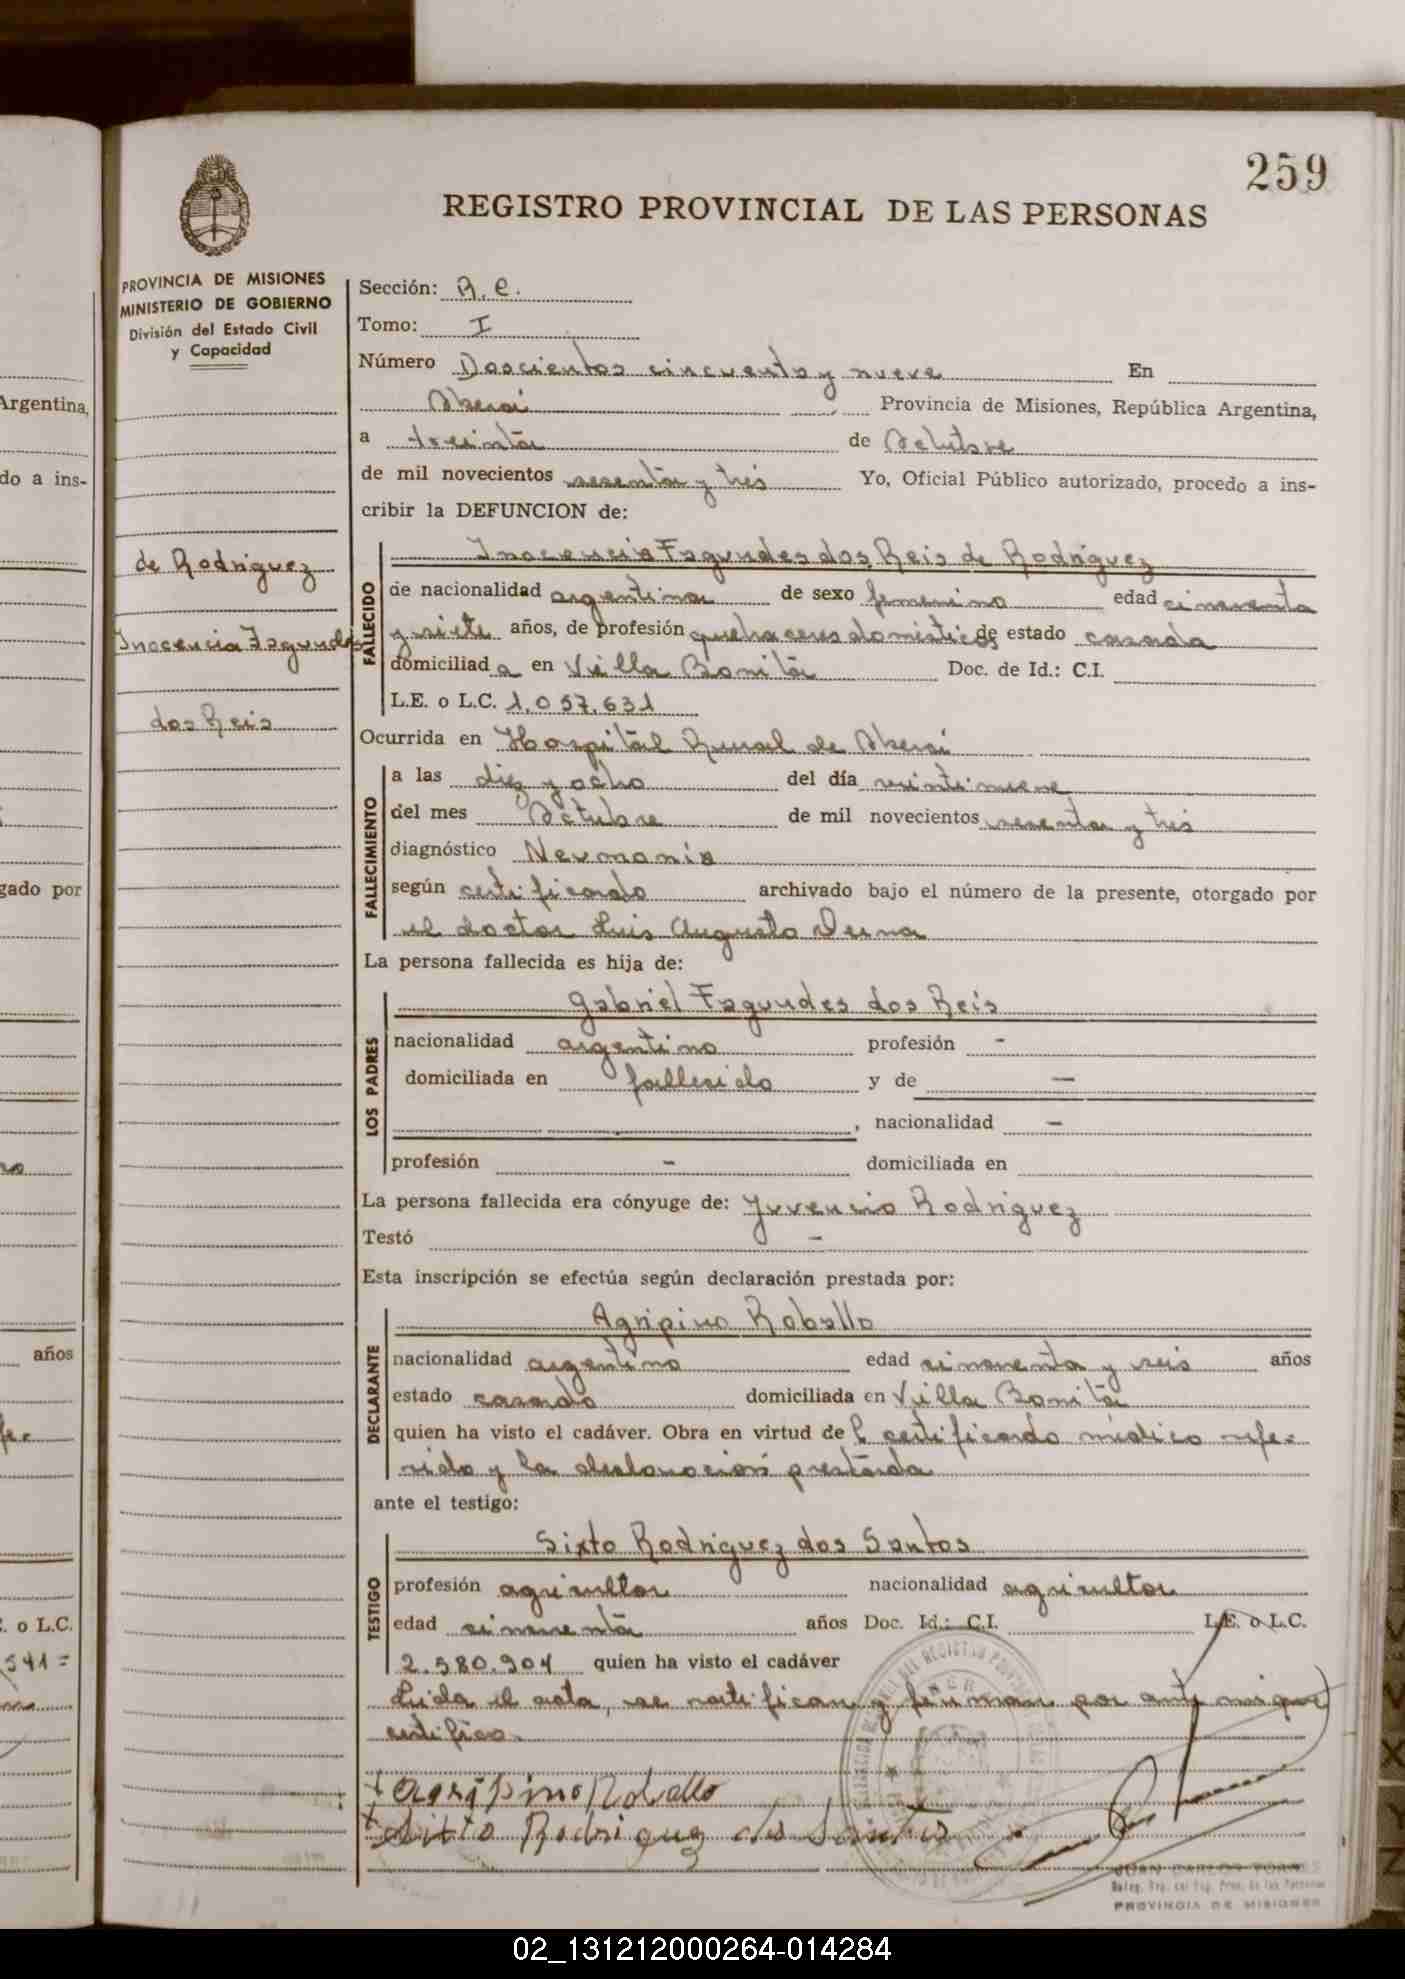 259
REGISTRO PROVINCIAL DE LAS PERSONAS
PROVINCIA DE MISIONES
MINISTERIO DE GOBIERNO
División del Estado Civil
y Capacidad
de Rodriguez
Inocencia Fagundes
dos Reis
Sección: R. C.
Tomo: I
Número Doscientos cincuenta y nueve En
Oberá Provincia de Misiones, República Argentina,
a treinta de Octubre
de mil novecientos sesenta y tres Yo, Oficial Público autorizado, procedo a ins-
cribir la DEFUNCION de:
FALLECIDO
Inocencia Fagundes dos Reis de Rodriguez
de nacionalidad argentina de sexo femenino edad cincuenta
y siete años, de profesión quehaceres domésticos de estado casada
domiciliada en Villa Bonita Doc. de Id.: C.I.
L.E. o L.C. 1.057.631
Ocurrida en Hospital Rural de Oberá
FALLECIMIENTO
a las diez y ocho del día veintinueve
del mes Octubre de mil novecientos sesenta y tres
diagnóstico Neumonía
según certificado archivado bajo el número de la presente, otorgado por
el doctor Luis Augusto Derna
La persona fallecida es hija de:
LOS PADRES
Gabriel Fagundes dos Reis
nacionalidad argentino profesión -
domiciliada en fallecido y de —
, nacionalidad —
profesión - domiciliada en
La persona fallecida era cónyuge de: Juvencio Rodriguez
Testó -
Esta inscripción se efectúa según declaración prestada por:
DECLARANTE
Agripino Roballo
nacionalidad argentino edad cincuenta y seis años
estado casado domiciliada en Villa Bonita
quien ha visto el cadáver. Obra en virtud del certificado médico refe-
rido y la declaración prestada
ante el testigo:
TESTIGO
Sixto Rodriguez dos Santos
profesión agricultor nacionalidad agricultor
edad cincuenta años Doc. Id.: C.I. L.E. o L.C.
2.580.904 quien ha visto el cadáver
Leida el acta, se ratifican y firman por ante mi que
certifico.
Agripino Roballo
Sixto Rodriguez dos Santos
JUAN CARLOS TORRES
PROVINCIA DE MISIONES
Argentina,
do a ins-
gado por
años
. o L.C.
541=
02_131212000264-014284